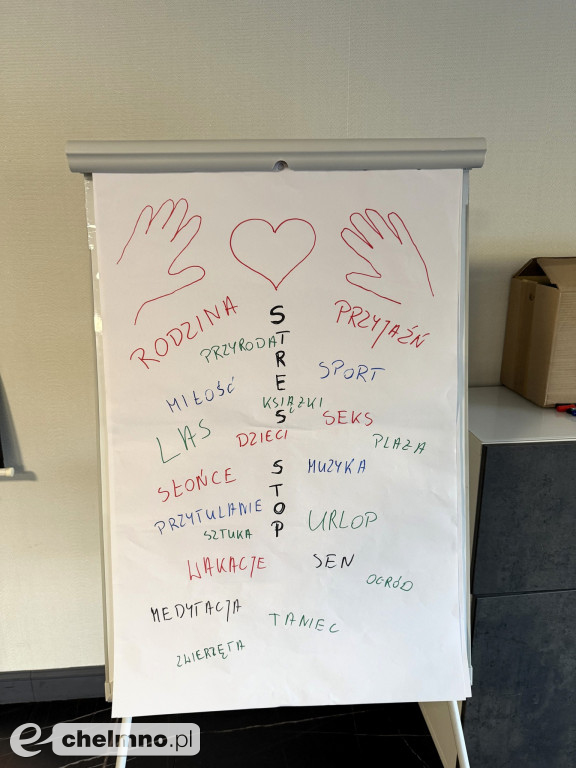 RODZINA
PRZYJAŹŃ
PRZYRODA
STRES STOP
SPORT
MIŁOŚĆ
KSIĄŻKI
SEKS
LAS
DZIECI
PLAŻA
SŁOŃCE
MUZYKA
PRZYTULANIE
SZTUKA
URLOP
WAKACJE
SEN
OGRÓD
MEDYTACJA
TANIEC
ZWIERZĘTA
e chelmno.pl